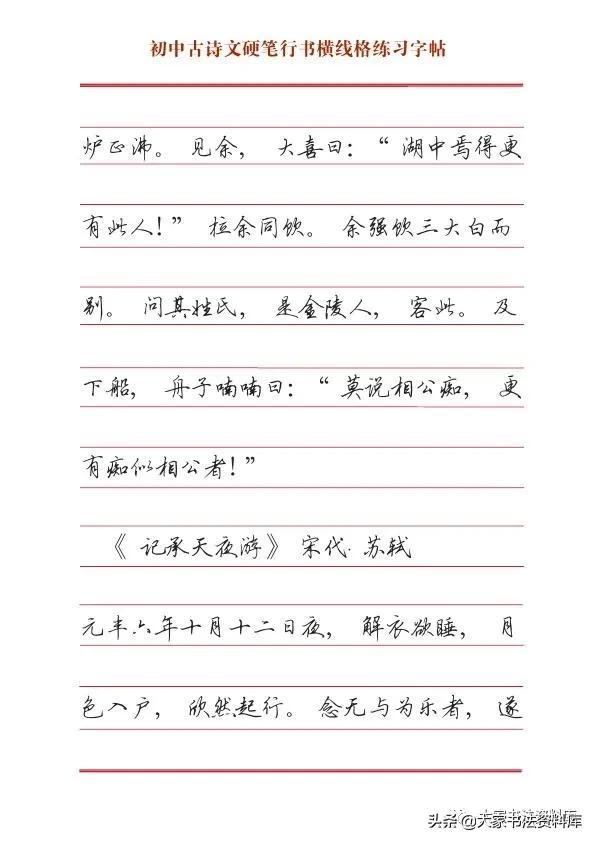 初中古诗文硬笔行书横线格练习字帖
炉正沸。 见余， 大喜曰：“ 湖中焉得更
有此人！” 拉余同饮。 余强饮三大白而
别。 问其姓氏， 是金陵人， 客此。 及
下船， 舟子喃喃曰：“ 莫说相公痴， 更
有痴似相公者！”
《 记承天夜游》 宋代· 苏轼
元丰六年十月十二日夜， 解衣欲睡， 月
色入户， 欣然起行。 念无与为乐者， 遂
大家书法资料库
头条@大家书法资料库